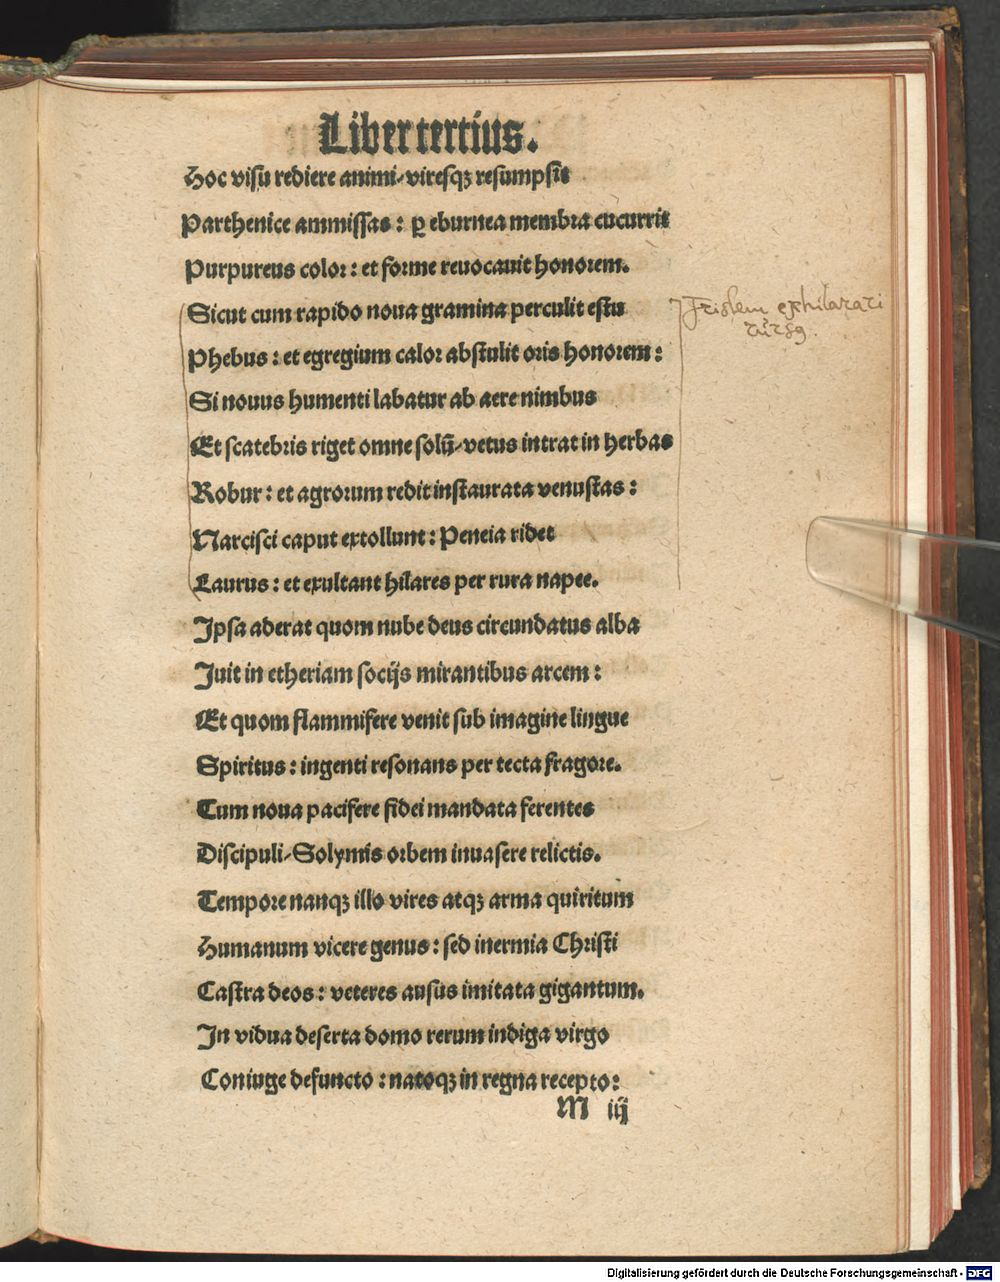 Liber tertius.
Hoc visu rediere animi/viresqꝫ resumpsit
Parthenice ammissas: ꝑ eburnea membra cucurrit
Purpureus color: et forme reuocauit honorem.
Sicut cum rapido noua gramina perculit estu
Phebus: et egregium calor abstulit oris honorem:
Si nouus humenti labatur ab aere nimbus
Et scatebris riget omne solū/vetus intrat in herbas
Robur: et agrorum redit instaurata venustas:
Narcisci caput extollunt: Peneia ridet
Laurus: et exultant hilares per rura napee.
Ipsa aderat quom nube deus circundatus alba
Iuit in etheriam socijs mirantibus arcem:
Et quom flammifere venit sub imagine lingue
Spiritus: ingenti resonans per tecta fragore.
Tum noua pacifere fidei mandata ferentes
Discipuli/Solymis orbem inuasere relictis.
Tempore nanqꝫ illo vires atqꝫ arma quiritum
Humanum vicere genus: sed inermia Christi
Castra deos: veteres ausus imitata gigantum.
In vidua deserta domo rerum indiga virgo
Coniuge defuncto: natoqꝫ in regna recepto:
M iij
Tristem exhilarari
Digitalisierung gefördert durch die Deutsche Forschungsgemeinschaft - DFG